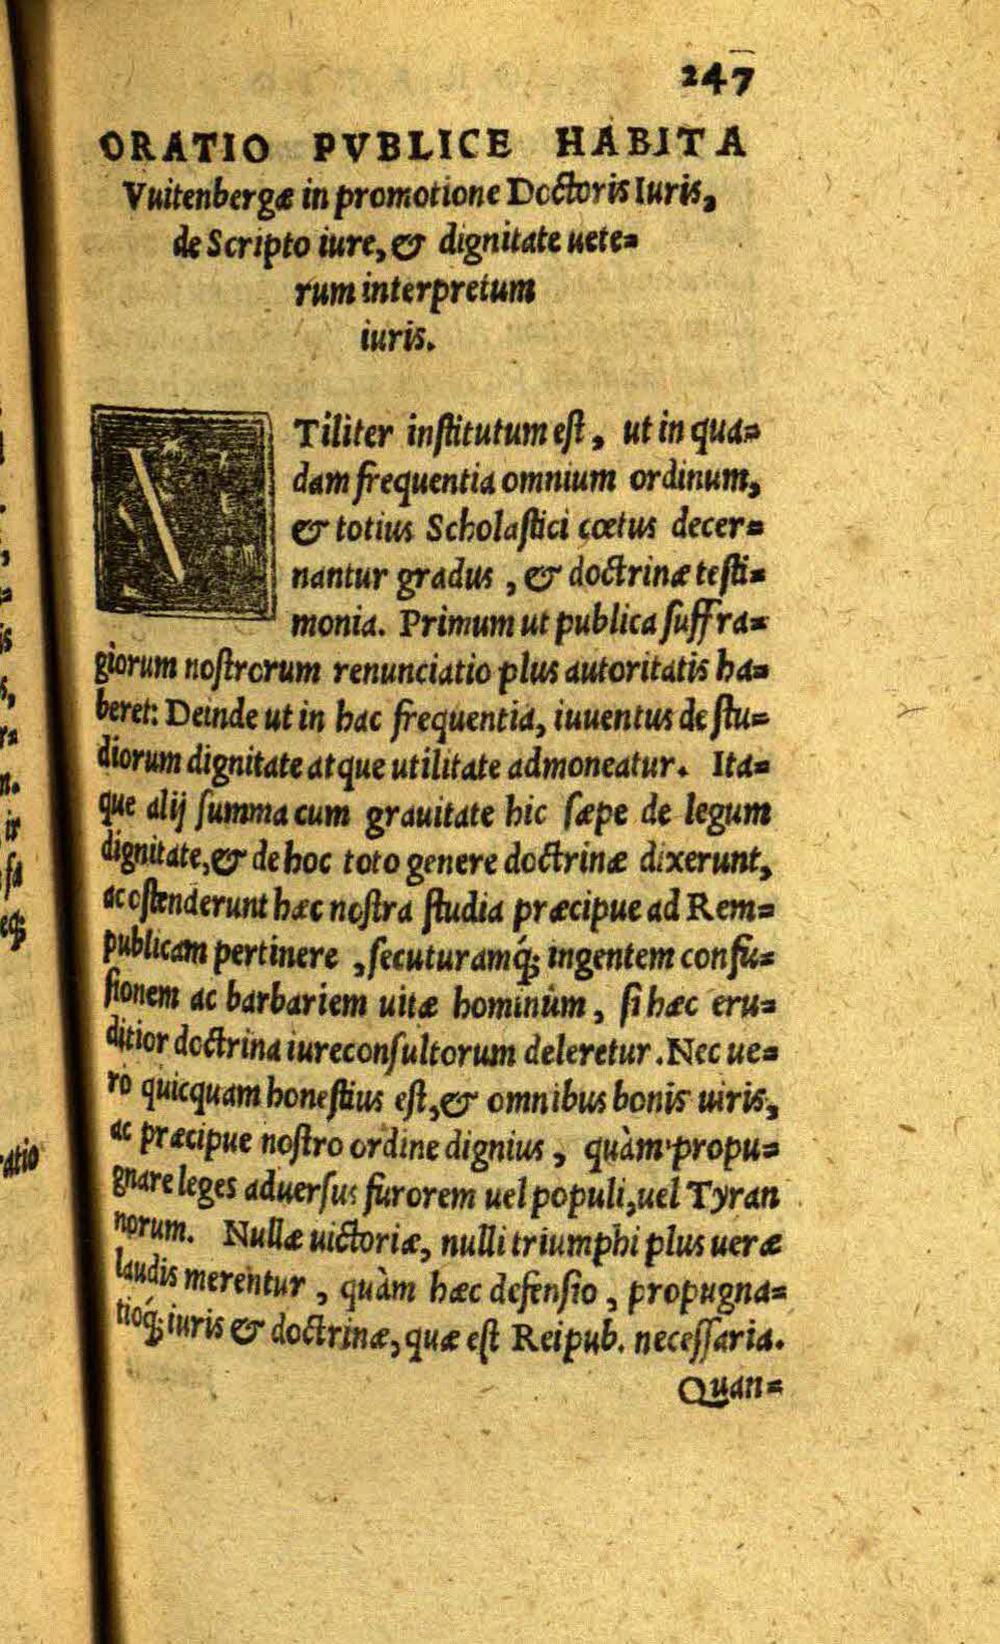 247
ORATIO PVBLICE HABITA
Vuitenbergæ in promotione Doctoris Iuris,
de Scripto iure, & dignitate uete=
rum interpretum
iuris.
VTiliter institutum est, ut in qua=
dam frequentia omnium ordinum,
& totius Scholastici cœtus decer=
nantur gradus, & doctrinæ testi=
monia. Primum ut publica suffra=
giorum nostrorum renunciatio plus autoritatis ha=
beret: Deinde ut in hac frequentia, iuuentus de stu=
diorum dignitate atque utilitate admoneatur. Ita=
que alij summa cum grauitate hic sæpe de legum
dignitate, & de hoc toto genere doctrinæ dixerunt,
ac ostenderunt hæc nostra studia præcipue ad Rem=
publicam pertinere, secuturamq́; ingentem confu=
sionem ac barbariem uitæ hominum, si hæc eru=
ditior doctrina iureconsultorum deleretur. Nec ue=
ro quicquam honestius est, & omnibus bonis uiris,
ac præcipue nostro ordine dignius, quàm propu=
gnare leges aduersus furorem uel populi, uel Tyran
norum. Nullæ uictoriæ, nulli triumphi plus ueræ
laudis merentur, quàm hæc defensio, propugna=
tioq́; iuris & doctrinæ, quæ est Reipub. necessaria.
Quan=